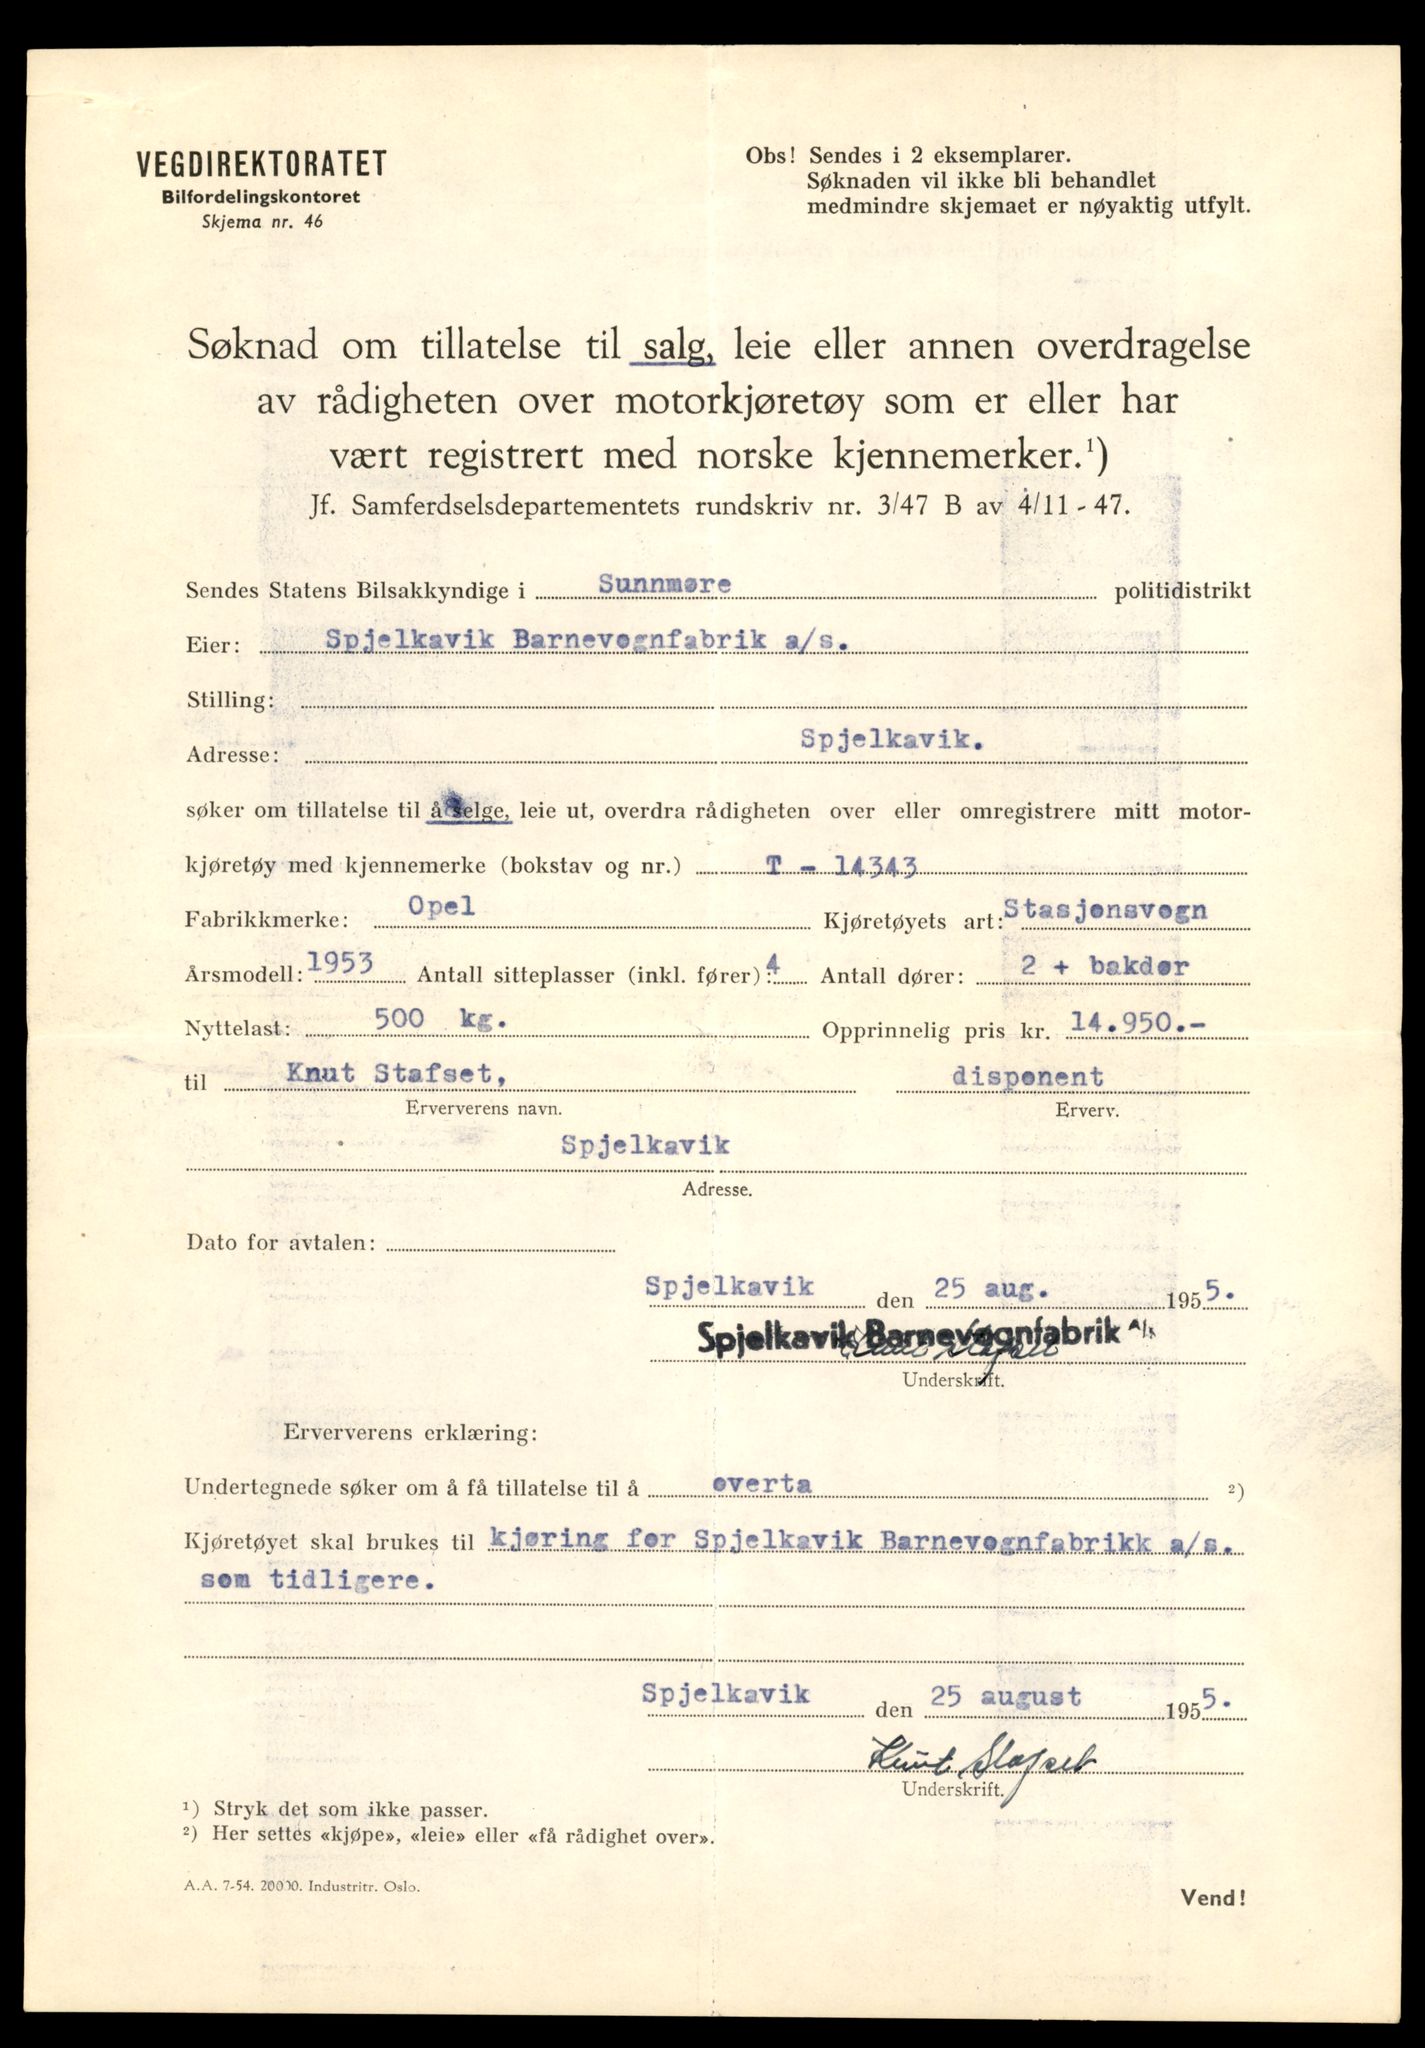 VEGDIREKTORATET
Bilfordelingskontoret
Skjema nr. 46
Obs! Sendes i 2 eksemplarer.
Søknaden vil ikke bli behandlet
medmindre skjemaet er nøyaktig utfylt.
Søknad om tillatelse til salg, leie eller annen overdragelse
av rådigheten over motorkjøretøy som er eller har
vært registrert med norske kjennemerker.¹)
Jf. Samferdselsdepartementets rundskriv nr. 3/47 B av 4/11 - 47.
Sendes Statens Bilsakkyndige i Sunnmøre politidistrikt
Eier: Spjelkavik Barnevognfabrik a/s.
Stilling:
Adresse: Spjelkavik.
søker om tillatelse til å selge, leie ut, overdra rådigheten over eller omregistrere mitt motor-
kjøretøy med kjennemerke (bokstav og nr.) T - 14343
Fabrikkmerke: Opel Kjøretøyets art: Stasjonsvogn
Årsmodell: 1953 Antall sitteplasser (inkl. fører): 4 Antall dører: 2 + bakdør
Nyttelast: 500 kg. Opprinnelig pris kr. 14.950.-
til Knut Stafset, disponent
Erververens navn. Erverv.
Spjelkavik
Adresse.
Dato for avtalen:
Spjelkavik den 25 aug. 1955.
Spjelkavik Barnevognfabrik A/s
Knut Stafset
Underskrift.
Erververens erklæring:
Undertegnede søker om å få tillatelse til å overta ²)
Kjøretøyet skal brukes til kjøring for Spjelkavik Barnevognfabrikk a/s.
som tidligere.
Spjelkavik den 25 august 1955.
Knut Stafset
Underskrift.
¹) Stryk det som ikke passer.
²) Her settes «kjøpe», «leie» eller «få rådighet over».
A.A. 7-54. 20000. Industritr. Oslo.
Vend!